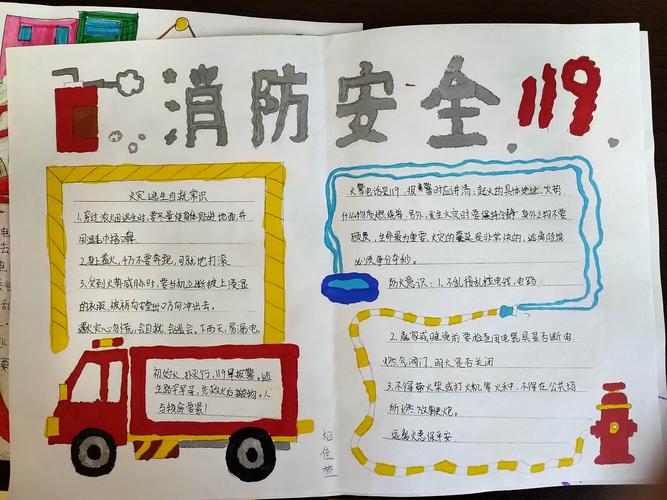 消防安全 119
火灾逃生自救常识
1.穿过浓烟逃生时,要尽量使身体贴近地面,并
用湿毛巾捂口鼻
2.身上着火,千万不要奔跑,可就地打滚
3.受到火势威胁时,要当机立断披上浸湿
的衣服、被褥向安全出口方向冲出去。
遇火灾心勿慌,会自救,会逃会。下雨天,易漏电。
初始火,扑灭行,119早报警。逃
生路千早寻,先救火后搬物。人
与物命要紧!
火警电话是119,报警时应讲清:起火的具体地址、火势
什么物质燃烧等,另外,发生火灾时要保持冷静,身外之物不要
顾虑,生命最为重要,火灾的蔓延是非常快的,逃离险境
必须争分夺秒。
防火意识:1.不乱接乱拉电线,电路
2.离家或睡觉前要检查用电器具是否断电
燃气阀门,明火是否关闭
3.不得带火柴或打火机等火种,不得在公共场
所燃放鞭炮。
远离火患保平安
佳